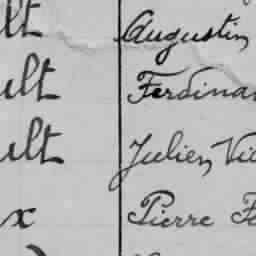 lt Augustin
ult Ferdinan
ult Julien Vi
x Pierre F